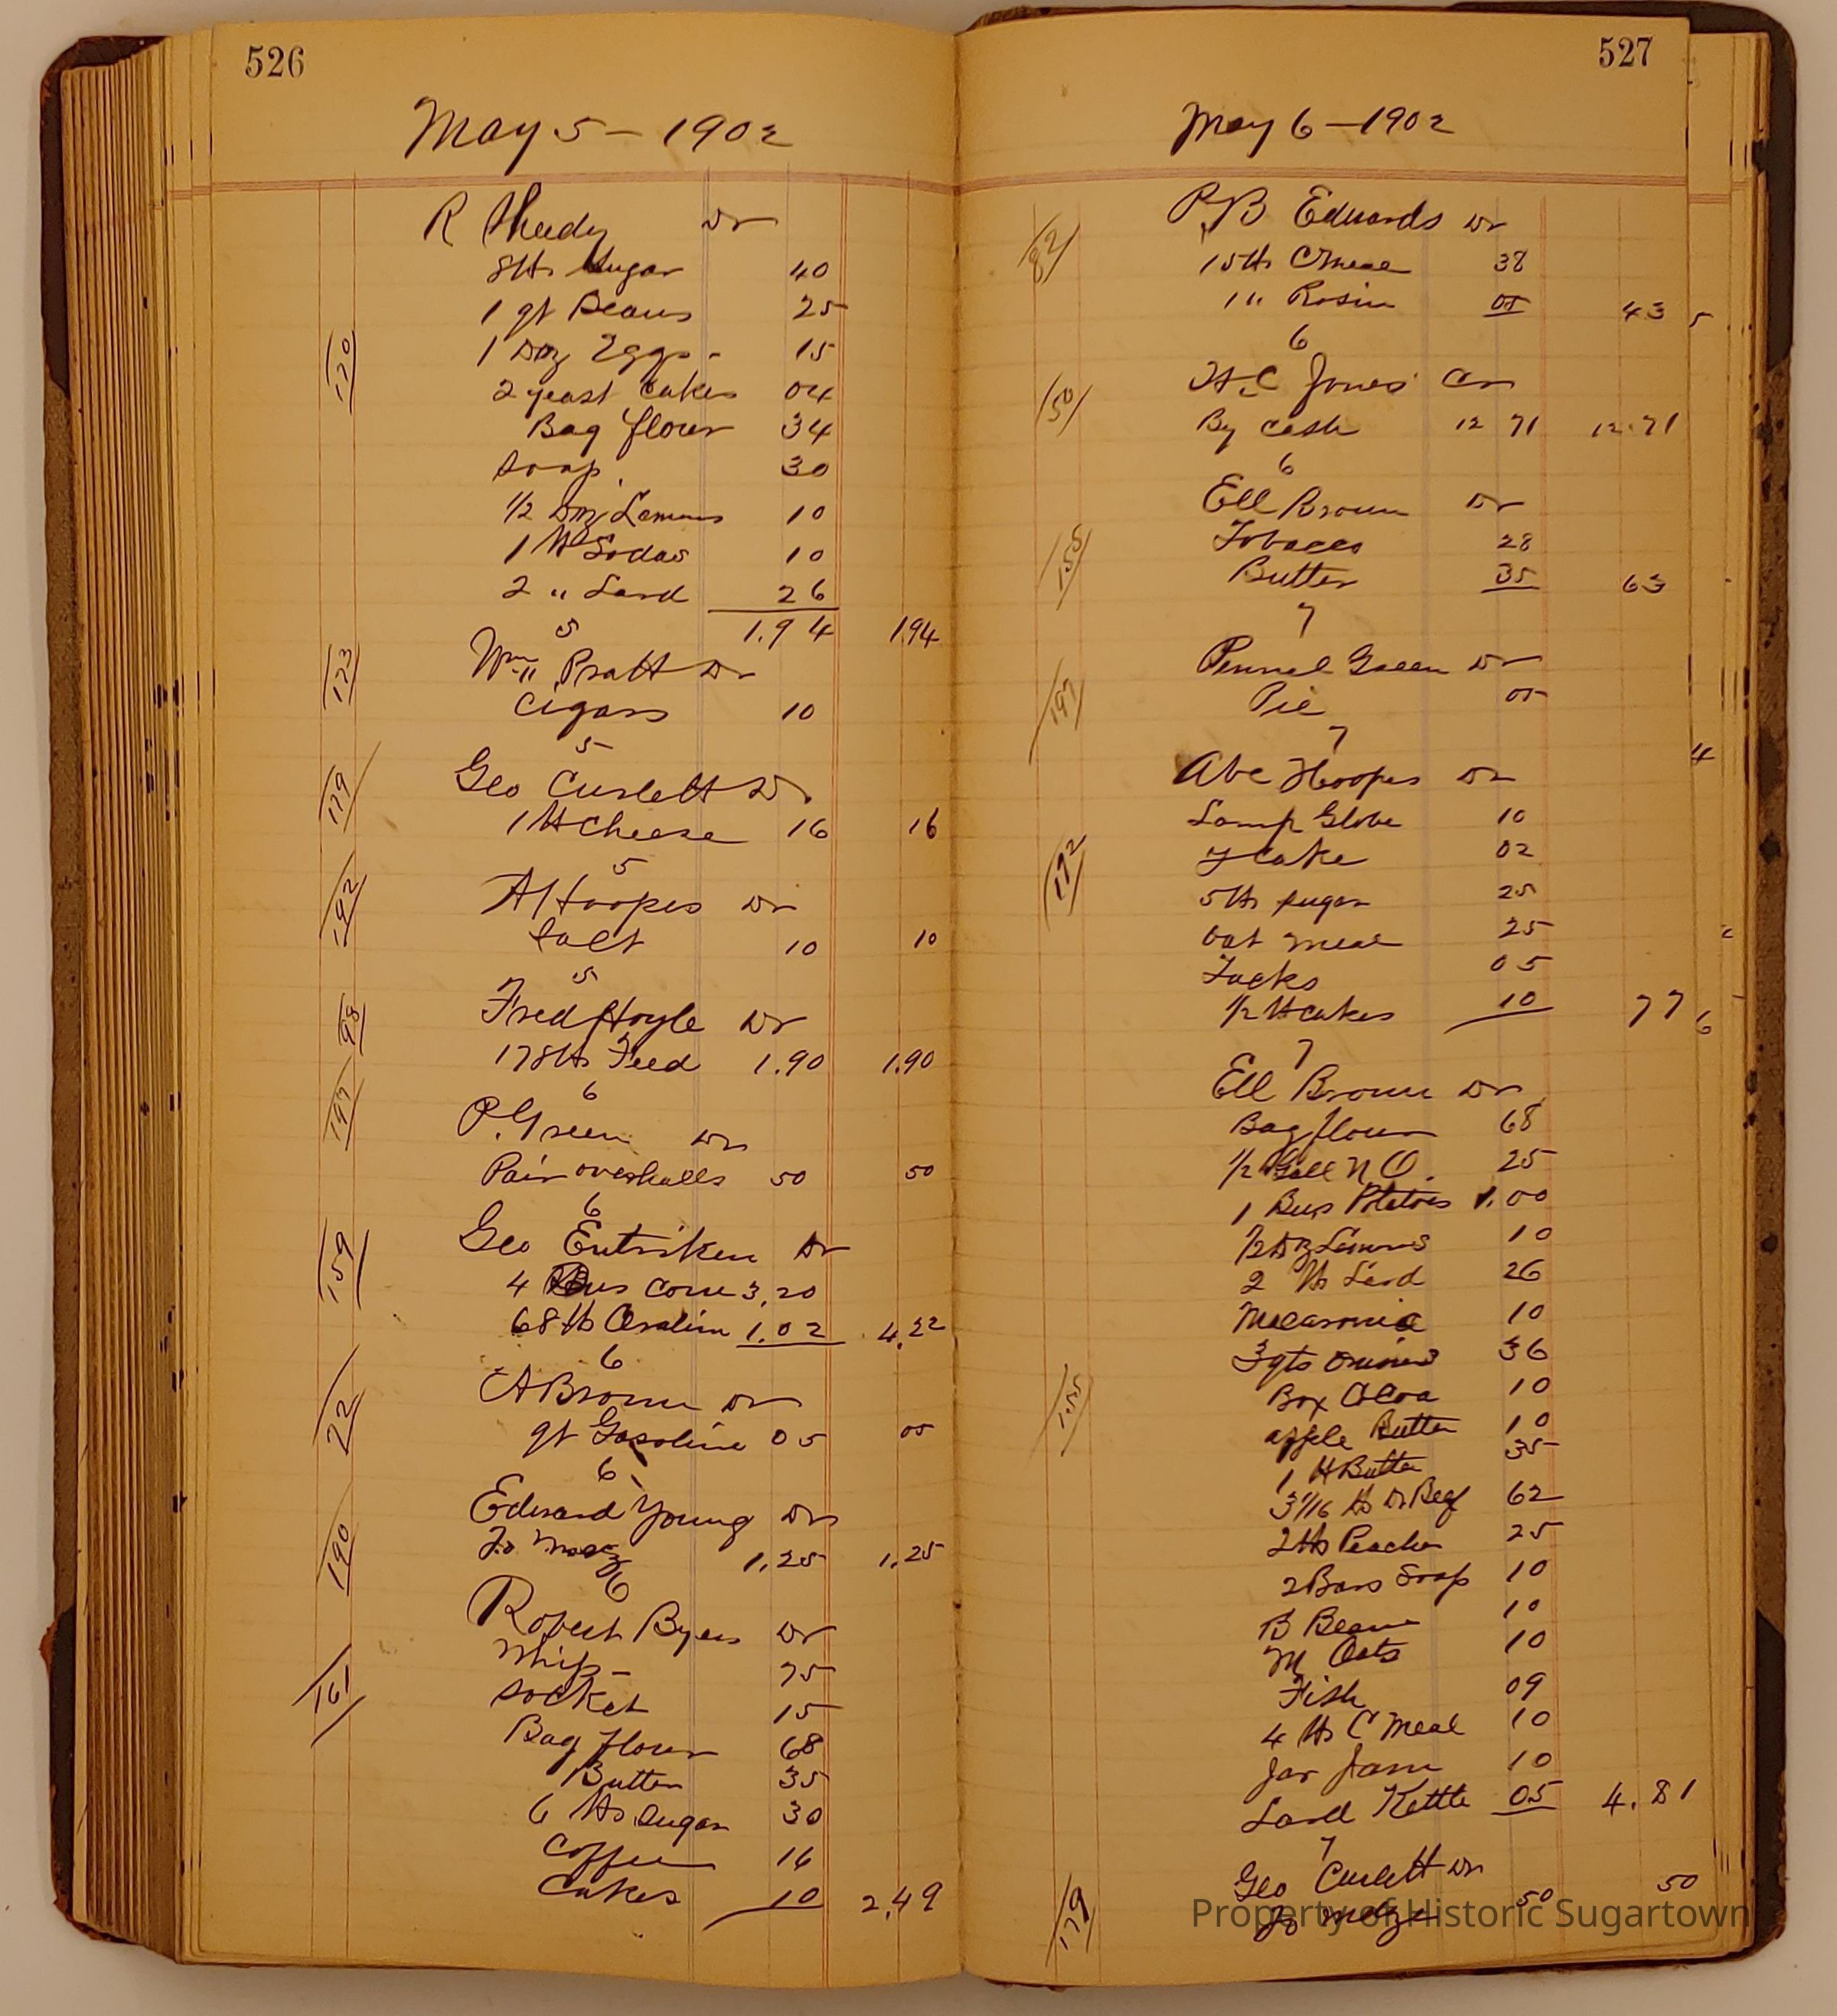 526
May 5 - 1902
R Sheedy Dr
8 lbs Sugar 40
1 qt Beans 25
120
1 Doz Eggs - 15
2 yeast cakes 04
Bag flour 34
Soap 30
1/2 Doz Lemons 10
1 lb Sodas 10
2 " Lard 26
1.94 1.94
5
123
Wm Pratt Dr
Cigars 10
5
179
Geo Curlett Dr
1 lb Cheese 16 16
5
192
A Hoopes Dr
Salt 10 10
5
98
Fred Hoyle Dr
178 lbs Feed 1.90 1.90
6
197
P. Green Dr
Pair overhalls 50 50
6
159
Geo Entriken Dr
4 Bus Corn 3.20
68 lb 1.02 4.22
6
22
Brown Dr
qt Gasoline 05 05
6
190
Edward Young Dr
To 1.25 1.25
6
Robert Byers Dr
161
Whip - 75
Socket 15
Bag flour 68
Butter 35
6 lbs Sugar 30
Coffee 16
Cakes 10 2.49
527
May 6 - 1902
82
P.B Edwards Dr
15 lbs C Meal 38
1 " Rosin 05 43
6
150
H.C Jones Cr
By Cash 12 71 12.71
6
Ell Brown Dr
155
Tobacco 28
Butter 35 63
7
197
Pennel Green Dr
Pie 05
7
Abe Hoopes Dr
Lamp Globe 10
192
y cake 02
5 lbs sugar 25
oat meal 25
Tacks 05
1/2 lb cakes 10 77
7
Ell Brown Dr
Bag flour 68
1/2 Gall N O. 25
1 Bus Potatoes 1.00
1/2 Dz Lemons 10
2 lbs Lard 26
Macaronia 10
3 qts onions 36
155
Box Cocoa 10
apple Butter 10
1 lb Butter 35
3 1/16 lb Dr Beef 62
2 lbs Peaches 25
2 Bars Soap 10
B Beans 10
M Oats 10
Fish 09
4 lbs C Meal 10
Jar Jam 10
Lard Kettle 05 4.81
7
179
Geo Curlett Dr
To Mdze 50 50
Property of Historic Sugartown